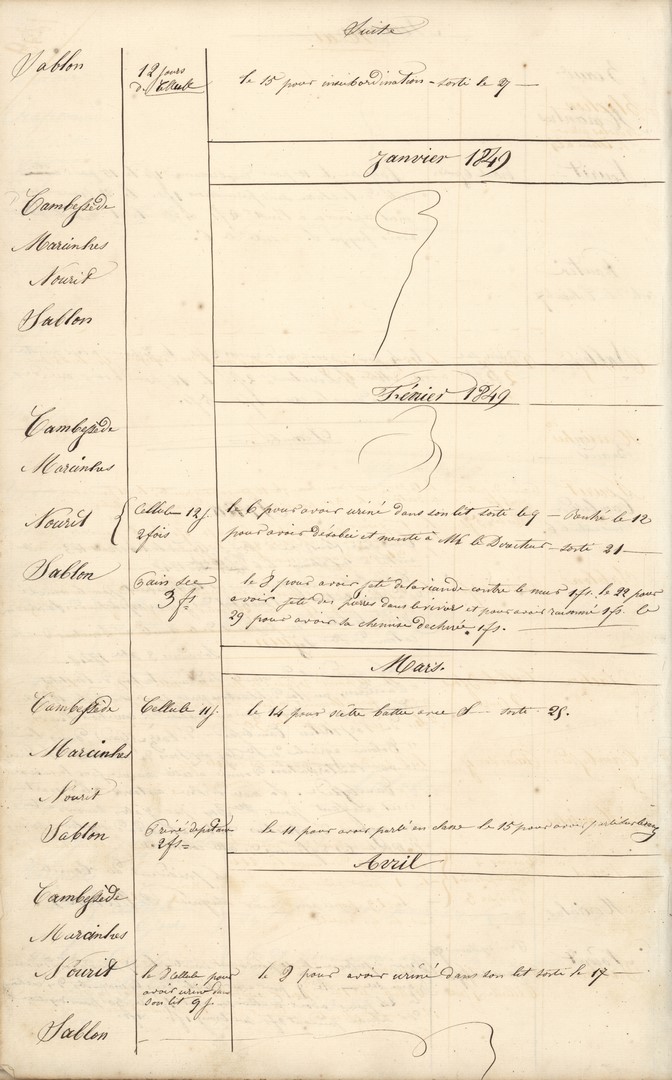 Suite
Sablon 12 jours de Cellule le 15 pour insubordination - sorti le 27 —
Janvier 1849
Cambessède
Marcinhes
Nourit
Sablon
Février 1849
Cambessède
Marcinhes
Nourit { Cellule 12 j. 2 fois le 6 pour avoir uriné dans son lit sorti le 9 — Rentré le 12
pour avoir désobéi et menti à Mr le Directeur - sorti 21 —
Sablon Pain sec 3 fs le 8 pour avoir jeté de la viande contre le mur 1 fs. le 22 pour
avoir jeté des pierres dans le and et pour avoir raisonné 1 fs. le
29 pour avoir sa chemise déchirée 1 fs. —
Mars.
Cambessède Cellule 11 j. le 14 pour s'être battu avec S — sorti 25.
Marcinhes
Nourit
Sablon Privé de pitance 2 fs = le 11 pour avoir parlé en classe le 15 pour avoir
Avril
Cambessède
Marcinhes
Nourit le 8 Cellule pour avoir uriné dans son lit 9 j. le 9 pour avoir uriné dans son lit sorti le 17 —
Sablon